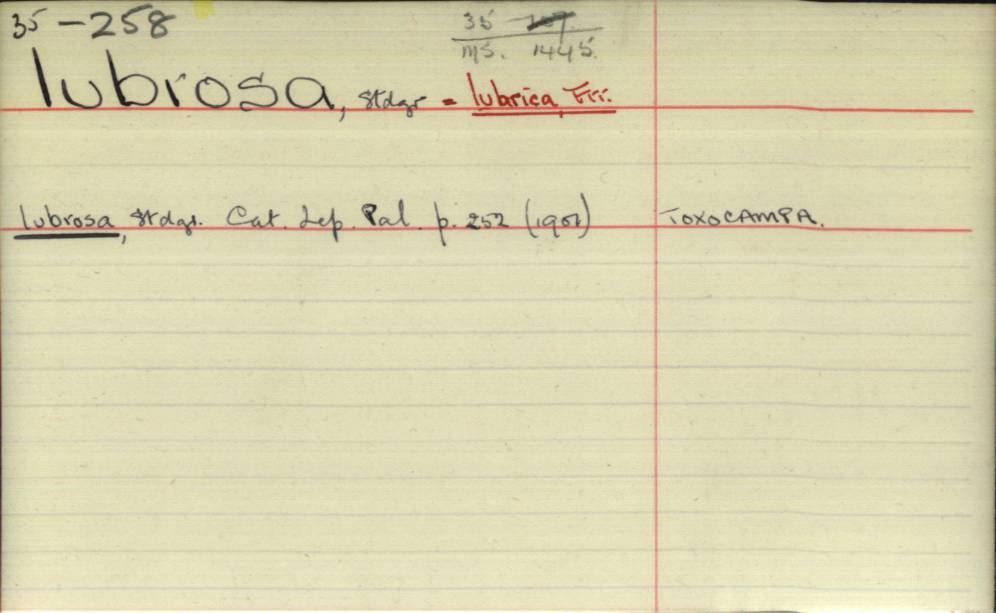 35-258
35
MS. 1445.
lubrosa, Stdgr = lubrica, Frr.
lubrosa, Stdgr. Cat. Lep. Pal. p. 252 (1901) TOXOCAMPA.